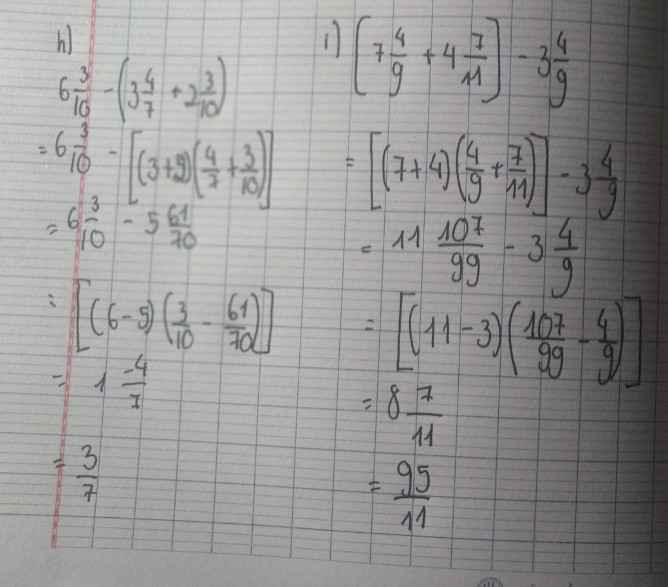 h)
6 3/10 - (3 4/7 + 2 3/10)
= 6 3/10 - [(3+2)(4/7 + 3/10)]
= 6 3/10 - 5 61/70
= [(6-5)(3/10 - 61/70)]
= 1 -4/7
= 3/7
i) [7 4/9 + 4 7/11] - 3 4/9
= [(7+4)(4/9 + 7/11)] - 3 4/9
= 11 107/99 - 3 4/9
= [(11-3)(107/99 - 4/9)]
= 8 7/11
= 95/11